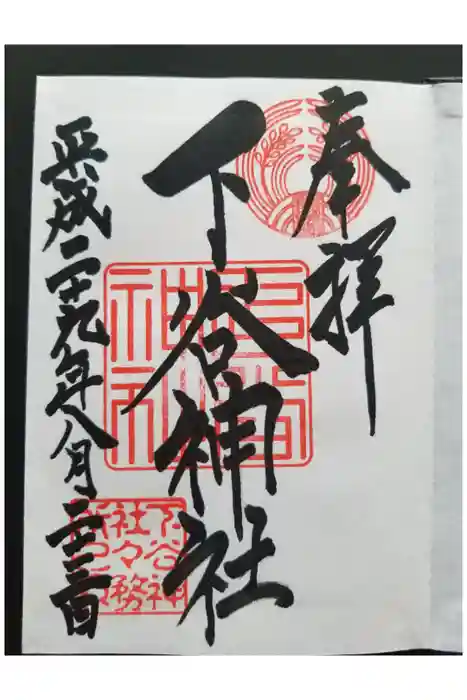 奉拝
下谷神社
平成二十九年八月二十三日
下谷神
社々務
所之印